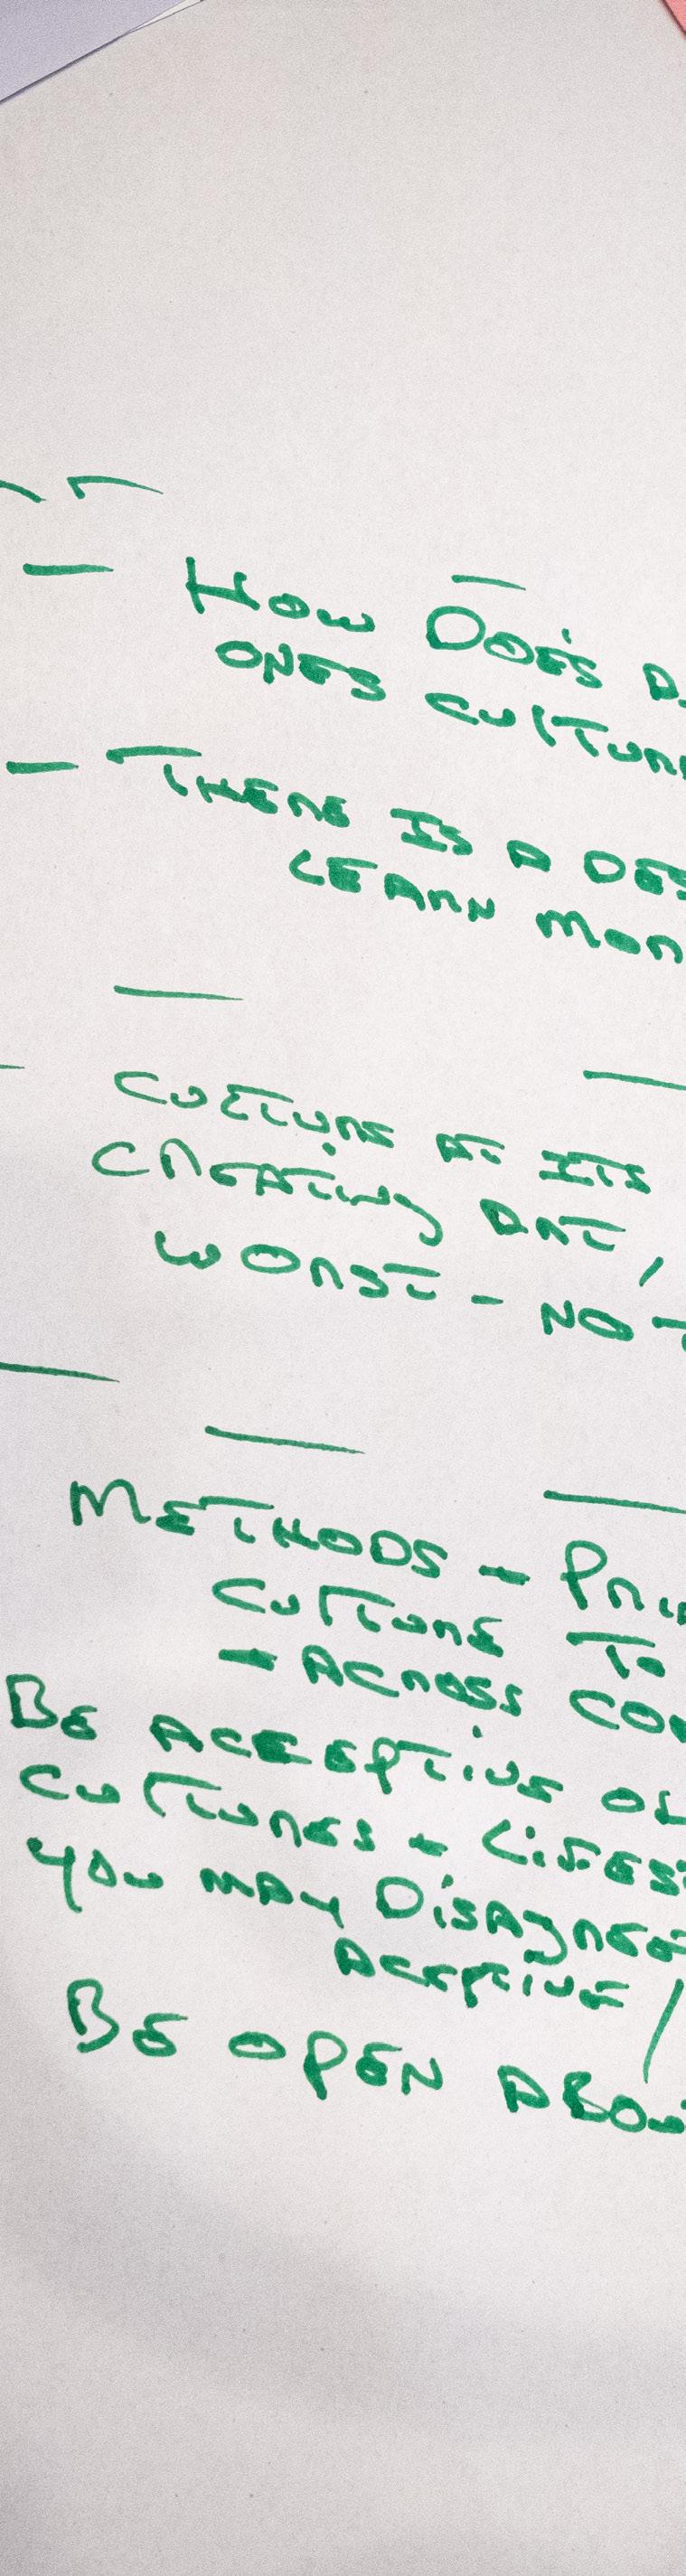 - How DOES A
ONES CULTUR
- THERE IS A DES
LEARN MOR
CULTURE AT ITS
CREATING ART,
WORST - NO
METHODS - PRI
CULTURE TO
- ACROSS CO
BE ACCEPTIVE O
CULTURES + LIFES
YOU MAY DISAGREE
ACEPTIVE /
BE OPEN ABOU